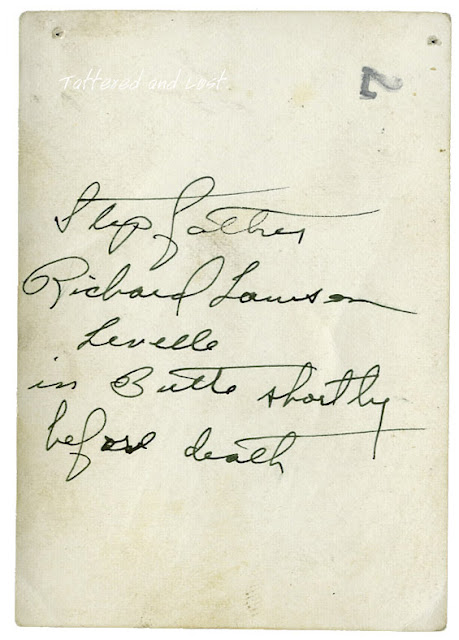 Tattered and Lost
2
Step father
Richard Lawson
Levelle
in Butte shortly
before death